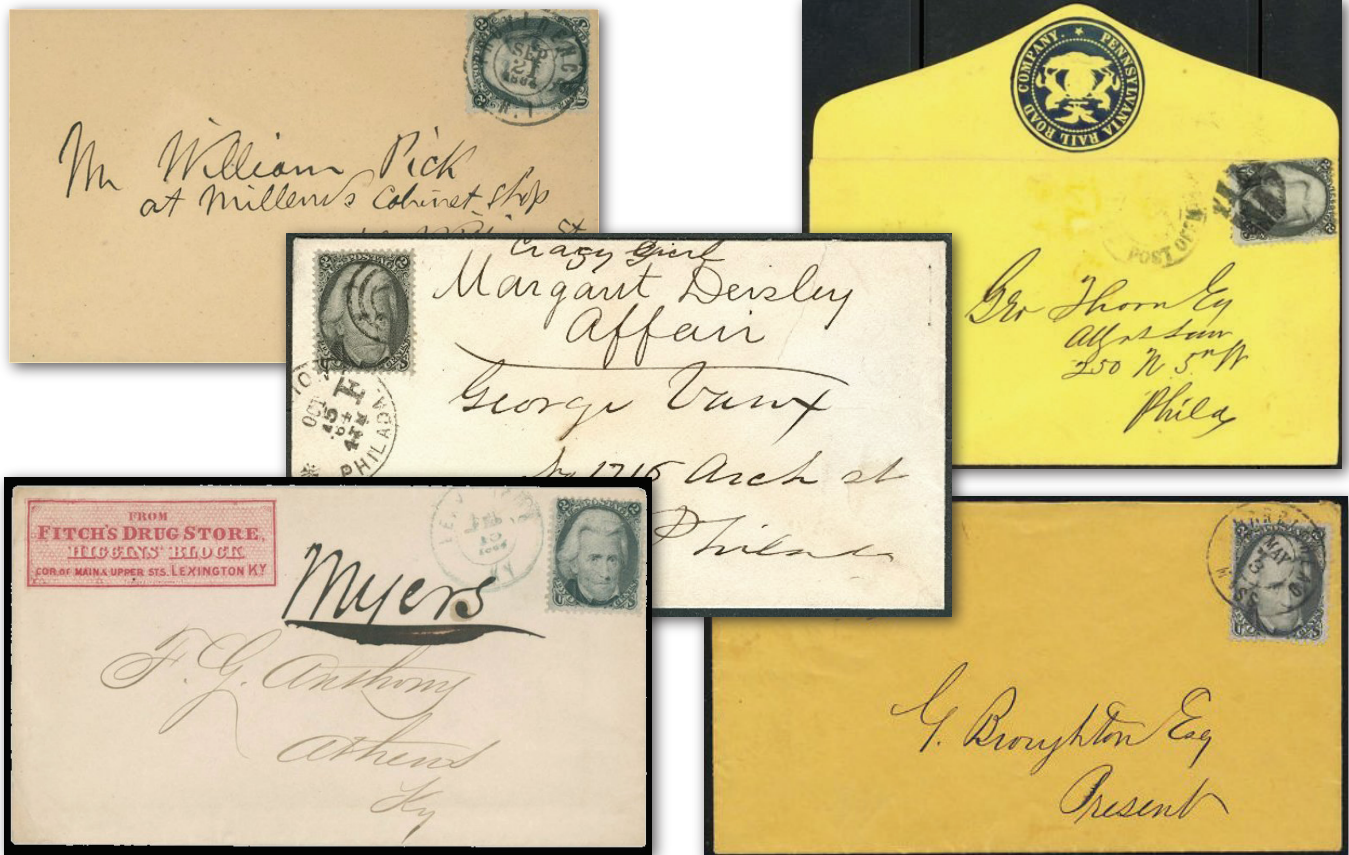 SEP
27
R.I.
Mr William Pick
at Millens Cabinet Shop
PENNSYLVANIA RAIL ROAD COMPANY.
POST OFFICE
Geo Thorn Esq
Att at Law
250 N 5th St
Phila
Crazy Girl
Margaret Deisley
Affair
George Vaux
No 1715 Arch st
Philada
OCT
5
PHILADA.
FROM
FITCH'S DRUG STORE,
HIGGINS' BLOCK
COR OF MAIN & UPPER STS. LEXINGTON KY
FEB
10
KY
Myers
F. G. Anthony
Athens
Ky
MAY
3
MASS
G. Broughton Esq
Present